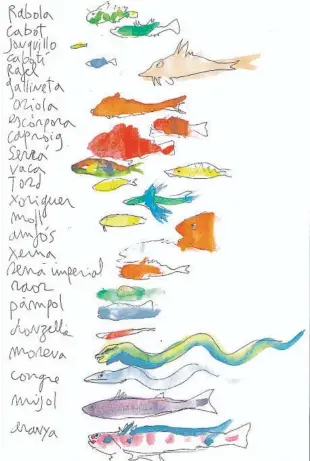 Rabola
cabot
Jonquillo
cabotí
Rafel
gallineta
oriola
escórpora
caproig
Serrá
vaca
Tord
xoriguer
moll
anfós
xerna
serrá imperial
raor
pámpol
donzella
morena
congre
mújol
aranya